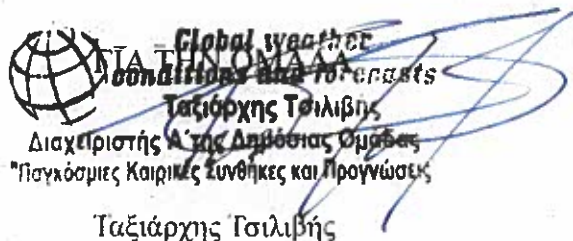 Global weather
ΓΙΑ ΤΗΝ ΟΜΑΔΑ
conditions and forecasts
Ταξιάρχης Τσιλιβής
Διαχειριστής Α΄της Δημόσιας Ομάδας
"Παγκόσμιες Καιρικές Συνθήκες και Προγνώσεις
Ταξιάρχης Τσιλιβής